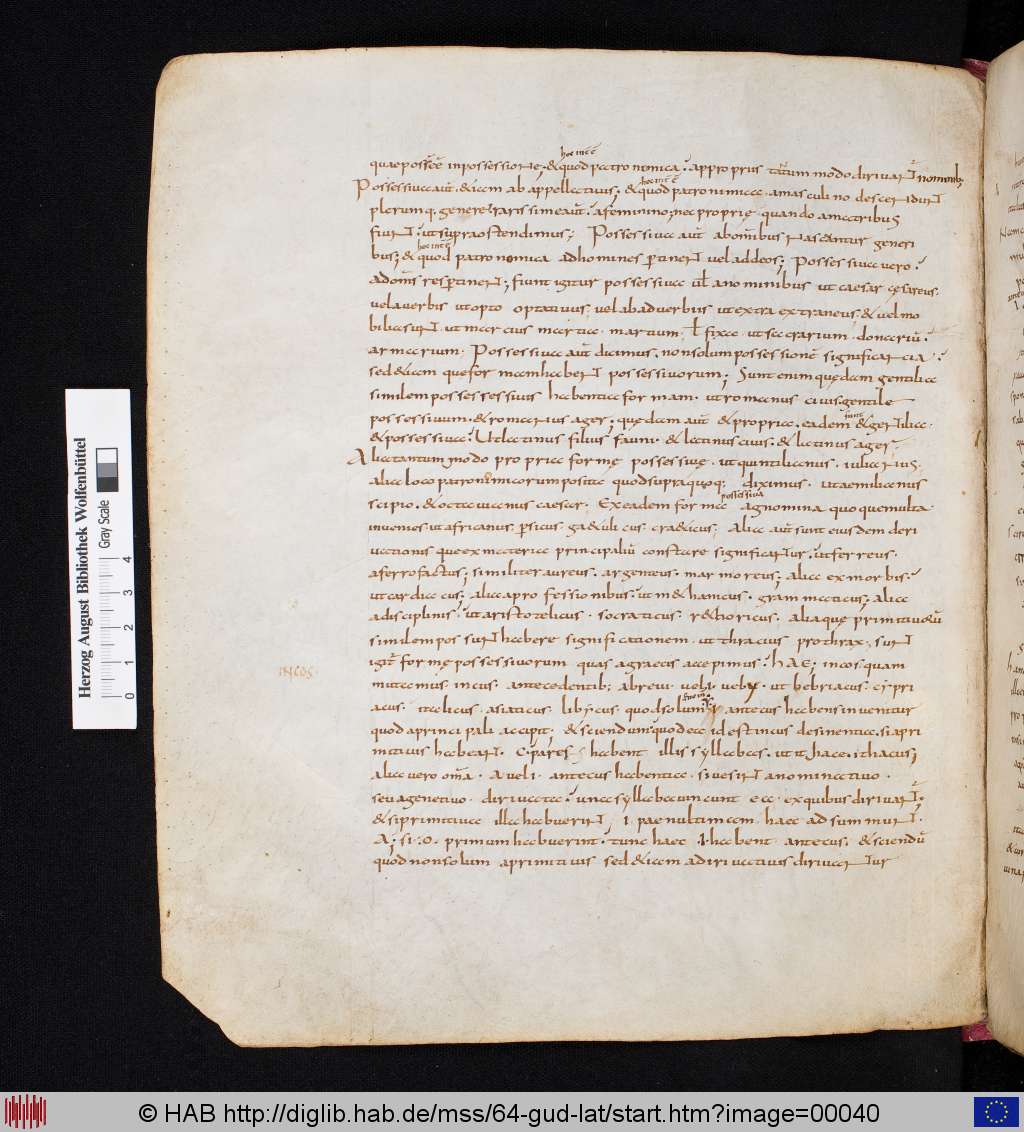 hoc interest
quae possessę in possessione; & quod patronomica. appropriis tantum modo dirivant nominib;
Possessiva aut. & iam ab appellativis; & quod patronimica. a masculino descendunt
plerumq. genere raris sime aut. a feminino; nec proprię quando a matribus
fiunt. ut supra ostendimus; Possessiva aut ab omibus nascantur generi
bus; & quod patronomica ad homines ptinent vel ad deos; Possessiva vero.
ad oms res ptinent; fiunt igitur possessiva ul a nominibus ut caesar cęsareus.
vel a verbis ut opto optativus. vel ab adverbiis ut extra extraneus. & vel mo
bilia sunt. ut marcius martia. martium. l fixa. ut sacrarium. donariū.
armarium. Possessiva aut dicimus. non solum possessionē significantia.
sed & iam que formam habent possessivorum; Sunt enim quędam gentilia
similem possessivis habentia formam. ut romanus civis. gentile
possessivum. & romanus ager; quędam aut & propria. eadem & gentilia.
& possessiva. Ut latinus filius fauni. & latinus civis. & latinus ager.
Alia tantum modo propria formę possessivę. ut quintilianus. iulianus.
alia loco patronimicorum posita quod supra quoq; diximus. ut aemilianus
scipio. & octavianus caesar. Ex eadem forma possessiva agnomina quoque multa
invenies ut africanus. psicus. g&ulicus. cr&icus; Alia aut sunt eiusdem deri
vationis que ex materia principaliū constare significantur. ut ferreus.
a ferro factus; similiter aureus. argenteus. marmoreus; alia ex morbis.
ut cardiacus; alia a professionibus. ut m&hanicus. grammaticus; alia
a disciplinis. ut aristotelicus. socraticus. r&horicus. aliaquę primitivorū
similem possunt habere significationem. ut thracius pro thrax; sunt
igit formę possessivorum quas a graecis accepimus. HAE; in cos quam
IN COS.
mutamus in cus. antecedentib; a brevi. vel i. vel y. ut hebriacus. cypri
acus. italicus. asiaticus. libycus. quod solum y ante cus habens invenitur
quod a principali accipit; & sciendum. quod ea id est in cus desinentia. si apri
mitivis habeant. C. partes; habent illis syllabas. ut ithaca. ithacus;
alia vero oma. A vel i. ante cus habentia. sive sint a nominativo.
seu a genetivo. dirivata. una syllaba vincunt ea. ex quibus dirivant;
& si primitiva illa habuerint; I. paenultimam. haec ad summunt.
A; si. O. primum habuerint. tunc haec. I. habent ante cus. & sciendū
quod non solum a primitivis sed & iam a dirivativis dirivantur
Herzog August Bibliothek Wolfenbüttel
Gray Scale
0 1 2 3 4
© HAB http://diglib.hab.de/mss/64-gud-lat/start.htm?image=00040